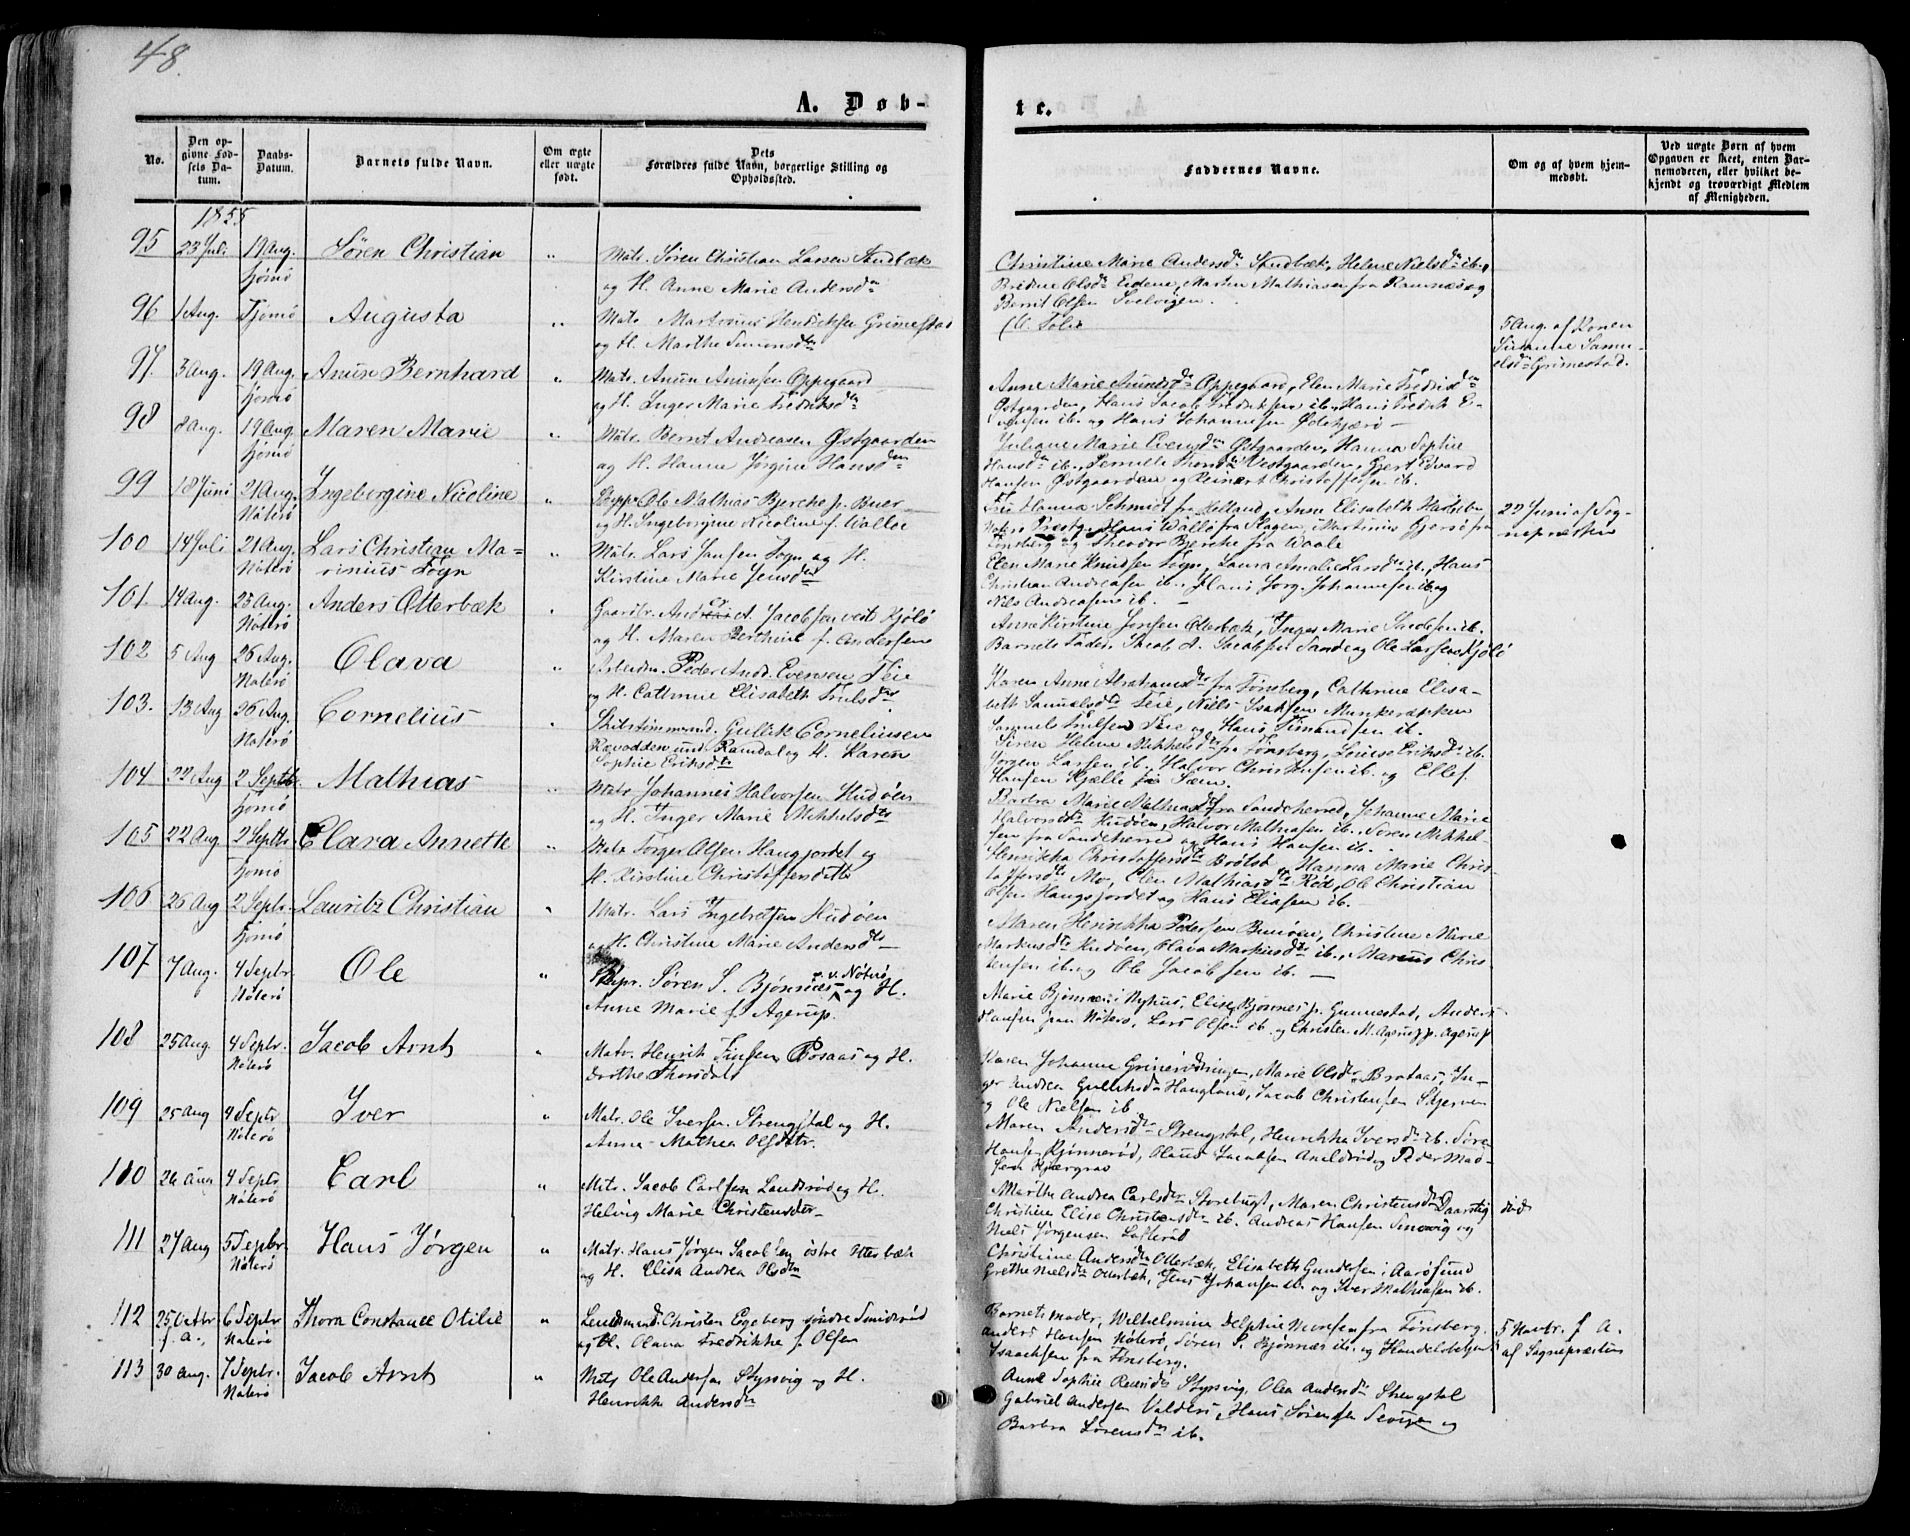 48.
A. Døb-
te.
No.
Den op-
givne Fød-
sels Da-
tum.
Daabs-
Datum.
Barnets fulde Navn.
Om ægte
eller uægte
født.
Dets
Forældres fulde Navn, borgerlige Stilling og
Opholdssted.
Faddernes Navne.
Om og af hvem hjem-
medøbt.
Ved uægte Børn af hvem
Opgaven er skeet, enten Bar-
nemoderen, eller hvilket be-
kjendt og troværdigt Medlem
af Menigheden.
1855
95 23 Juli 19 Aug. Søren Christian " Matr. Søren Christian Larsen Stndbæk
Tjømø og H. Anne Marie Andersdtr
Christine Marie Andersdtr Stndbæk, Helene Nielsdtr ib.,
Olsdtr Eidene, Marten Mathiasen fra Ramnæs og
Bernt Olsen Solvigen.
96 1 Aug. Tjømø Augusta " Matr. Martinius Hendriksen Grimestad
og H. Marthe Simonsdtr
5 Aug. af Konen
Susanne Samu-
elsdtr Grimestad.
97. 3 Aug. 19 Aug. Anun Bernhard " Matr. Anun Anunsen Oppegaard
Tjømø og H. Inger Marie Fredriksdtr
Anne Marie Anundsdtr Oppegaard, Elen Marie Fredriksdtr
Østgaarden, Hans Jacob Fredriksen ib., Hans Fredrik E-
vensen ib. og Hans Johannesen Ødekjæro
98 8 Aug. 19 Aug. Maren Marie " Matr. Bernt Andreasen Østgaarden
Tjømø og H. Hanne Jørgine Hansdtr
Juliane Marie Evensdtr Østgaarden, Hanna Sophie
Hansdtr ib., Pernele Thorsdtr Vestgaarden, Gjert Edvard
Hansen Østgaarden og Reinert Christoffersen ib.
99 18 Juni 21 Aug. Ingebergine Nicoline " Skipp. Ole Mathias Bjerche p. Buer
Nøterø og H. Ingeborgine Nicoline f. Walløe
Frue Hanna Schmidt fra Helland, Anne Elisabeth
Nøterø Prestg., Hans Walløe fra Slagen, Martinius Gjersø fra
Tønsberg og Theodor Bjerche fra Waale
22 Juni af Sog-
nepresten
100 14 Juli 21 Aug. Lars Christian Ma- " Matr. Lars Jensen Fogn og H.
Nøterø rinius Fogn Kirstine Marie Jensdtr
Elen Marie Knudsen Fogn, Laura Amalie Larsdtr ib., Hans
Christian Andreasen ib., Hans Jørg. Johannesen ib. og
Nils Andreasen ib.
101. 14 Aug. 25 Aug. Anders Otterbæk " Gaardbr. Andreas A. Jacobsen vest Kjøle
Nøterø og H. Maren Berthine f. Andersen
Anne Kirstine Jensen Otterbæk, Inger Marie Jacobsen ib.
Barnets Fader, Jacob A. Jacobsen Sande og Ole Larsen Kjøle
102 5 Aug 26 Aug. Olava " Arbeidm. Peder Andr. Evensen Teie
Nøterø og H. Cathrine Elisabeth Trulsdtr
Karen Anne Abrahamsdtr fra Tønsberg, Cathrine Elisa-
beth Samuelsdtr Teie, Niels Isaksen Munkerækken
Samuel Trulsen Teie og Hans Simandsen ib.
103. 13 Aug 26 Aug. Cornelius " Skilstimmerm. Gullik Corneliussen
Nøterø Rævodden und. Ramdal og H. Karen
Sophie Eriksdtr
Siren Helene Mikkelsdtr fra Tønsberg, Louise Eriksdtr ib.
Jørgen Larsen ib., Halvor Christensen ib. og Ellef
Hansen Kjælle fra Sæm.
104 22 Aug 2 Septbr Mathias " Matr. Johannes Halvorsen Hudøen
Tjømø og H. Inger Marie Mikkelsdtr
Barbra Marie Mathiasdtr fra Sandeherred, Johanne Marie
Halvorsdtr Hudøen, Halvor Mathiasen ib., Søren Mikkel-
sen fra Sandeherred og Hans Hansen ib.
105 22 Aug. 2 Septbr Clara Annette " Matr Torger Olsen Haugjordet og
Tjømø H. Kirstine Christoffersdatter
Henrikka Christoffersdtr Brøtsø, Hanna Marie Chris-
toffersdtr Mo, Elen Mathiasdtr Rød, Ole Christian
Olsen Haugsjordet og Hans Eliasen ib.
106 26 Aug 2 Septbr Lauritz Christian " Matr. Lars Ingebretsen Hudøen
Tjømø og H. Christine Marie Andersdtr
Maren Henrikka Pedersen Bunøen, Christine Marie
Markusdtr Hudøen, Olava Markusdtr ib., Marcus Chris-
tensen ib. og Ole Jacobsen ib.
107 7 Aug. 4 Septbr. Ole " Skpr. Søren S. Bjønnes v. Nøterø og H.
Nøterø Anne Marie f. Agerup.
Marie Bjønnes i Nyhus, Elise Bjønnes p. Gunnestad, Anders
Hansen paa Nøterø, Lars Olsen ib. og Christen M. Agerup p. Agerup
108 25 Aug. 4 Septbr. Jacob Arnt " Matr. Henrik Finsen Rosaas og H.
Nøterø Dorthe Thorsdatr
Karen Johanne Grinerødningen, Marie Olsdtr Brataas, In-
ger Andrea Gulliksdtr Hauglund, Jacob Christensen Skjerven
og Ole Nielsen ib
109 25 Aug 4 Septbr Iver " Matr. Ole Iversen Strengstal og H.
Nøterø Anne Mathea Olsdatr.
Maren Andersdtr Strengstal, Henrikka Iversdtr ib. Søren
Hansen Rønnerød, Olaus Jacobsen og Peder Mad-
sen Kjærgrav
110 26 Aug 4 Septbr Carl " Matr. Jacob Carlsen Landsrød og H.
Nøterø Helvig Marie Christensdtr
Marthe Andrea Carlsdtr Storebugt, Maren Christensdtr Daarstig
Christine Elise Christensdtr ib. Andreas Hansen og
Niels Jørgensen
død
111 27 Aug 5 Septbr. Hans Jørgen " Matr. Hans Jørgen Jacobsen østre Otterbæk
Nøterø og H. Elisa Andrea Olsdtr
Christine Andersdtr Otterbæk, Elisabeth Gundersen i Aarøsund
Grethe Nielsdtr Otterbæk, Jens Johansen ib. og Iver Mathiasen ib.
112 25 Octbr 6 Septbr Thora Constance Otilie " Lendsmand Christen Egeberg søndre Smidsrød
f. A. Nøterø og H. Olava Fredrikke f. Olsen
Barnets moder, Wilhelmine Delphine Monsen fra Tønsberg.
Anders Hansen Nøterø, Søren S. Bjønnæs ib. og Handelsbetjent
Isaachsen fra Tønsberg.
5 Novbr. f. A.
af Sognepræsten
113 30 Aug. 7 Septbr. Jacob Arnt " Matr Ole Andersen Styrsvig og H.
Nøterø Henrikke Andersdtr
Anne Sophie Styrsvig, Olea Andersdtr Strengstal
Gabriel Andersen Valders, Hans Sørensen og
Barbra Sørensdtr ib.